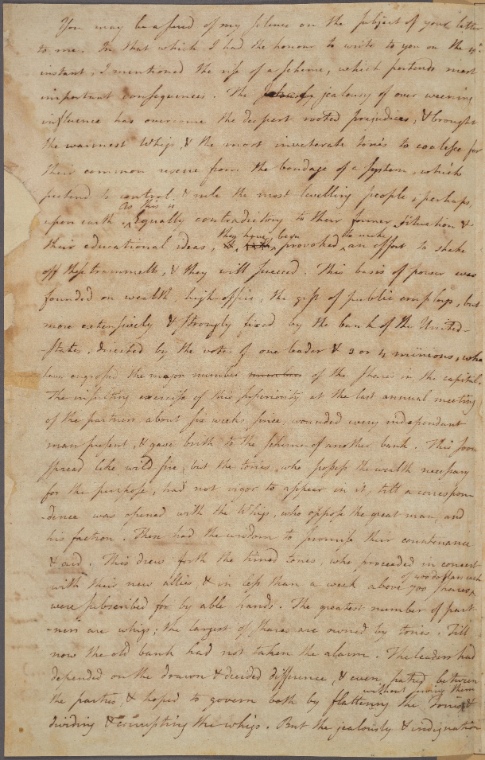 You may be assured of my silence on the subject of your letter
to me. In that which I had the honour to write to you on the
instant, I mentioned the rise of a scheme, which portends most
important consequences. The jealousy of over weening
influence has overcome the deepest rooted prejudices, & brought
the warmest Whigs & the most inveterate tories to coalesce for
their common rescue from the bondage of a system, which
pretend to control & rule the most levelling people, perhaps,
upon earth. As this is Equally contradictory to their former situation &
their educational ideas, they have been provoked, to make an effort to shake
off these trammells, & they will succeed. This basis of power was
founded on wealth, high office, the gift of public employs, but
more extensively & strongly fixed by the bank of the United-
-States, directed by the vote of one leader & 3 or 4 minions, who
have engrossed the major number of the shares in the capital.
The insulting exercise of this superiority at the last annual meeting
of the partners about six weeks since, wounded every independant
man present, & gave birth to the scheme of another bank. This soon
spread like wild fire, but the tories, who possess the wealth necessary
for the purpose, had not vigor to appear in it, till a correspon-
-dence was opened with the Whigs, who oppose the great man, and
his faction. These had the wisdom to promise their countenance
& aid. This drew forth the timid tories, who proceeded in concert
with their new allies & in less than a week above 700 shares of 400 dollars each
were subscribed for by able hands. The greatest number of part
ners are whigs; the largest of shares are owned by tories. Till
now the old bank had not taken the alarm. The leaders had
depended on the drawn & decided difference, & even hatred between
the parties, & hoped to govern both by flattering the tories without joining them &
dividing & corrupting the whigs. But the jealousy & indignation